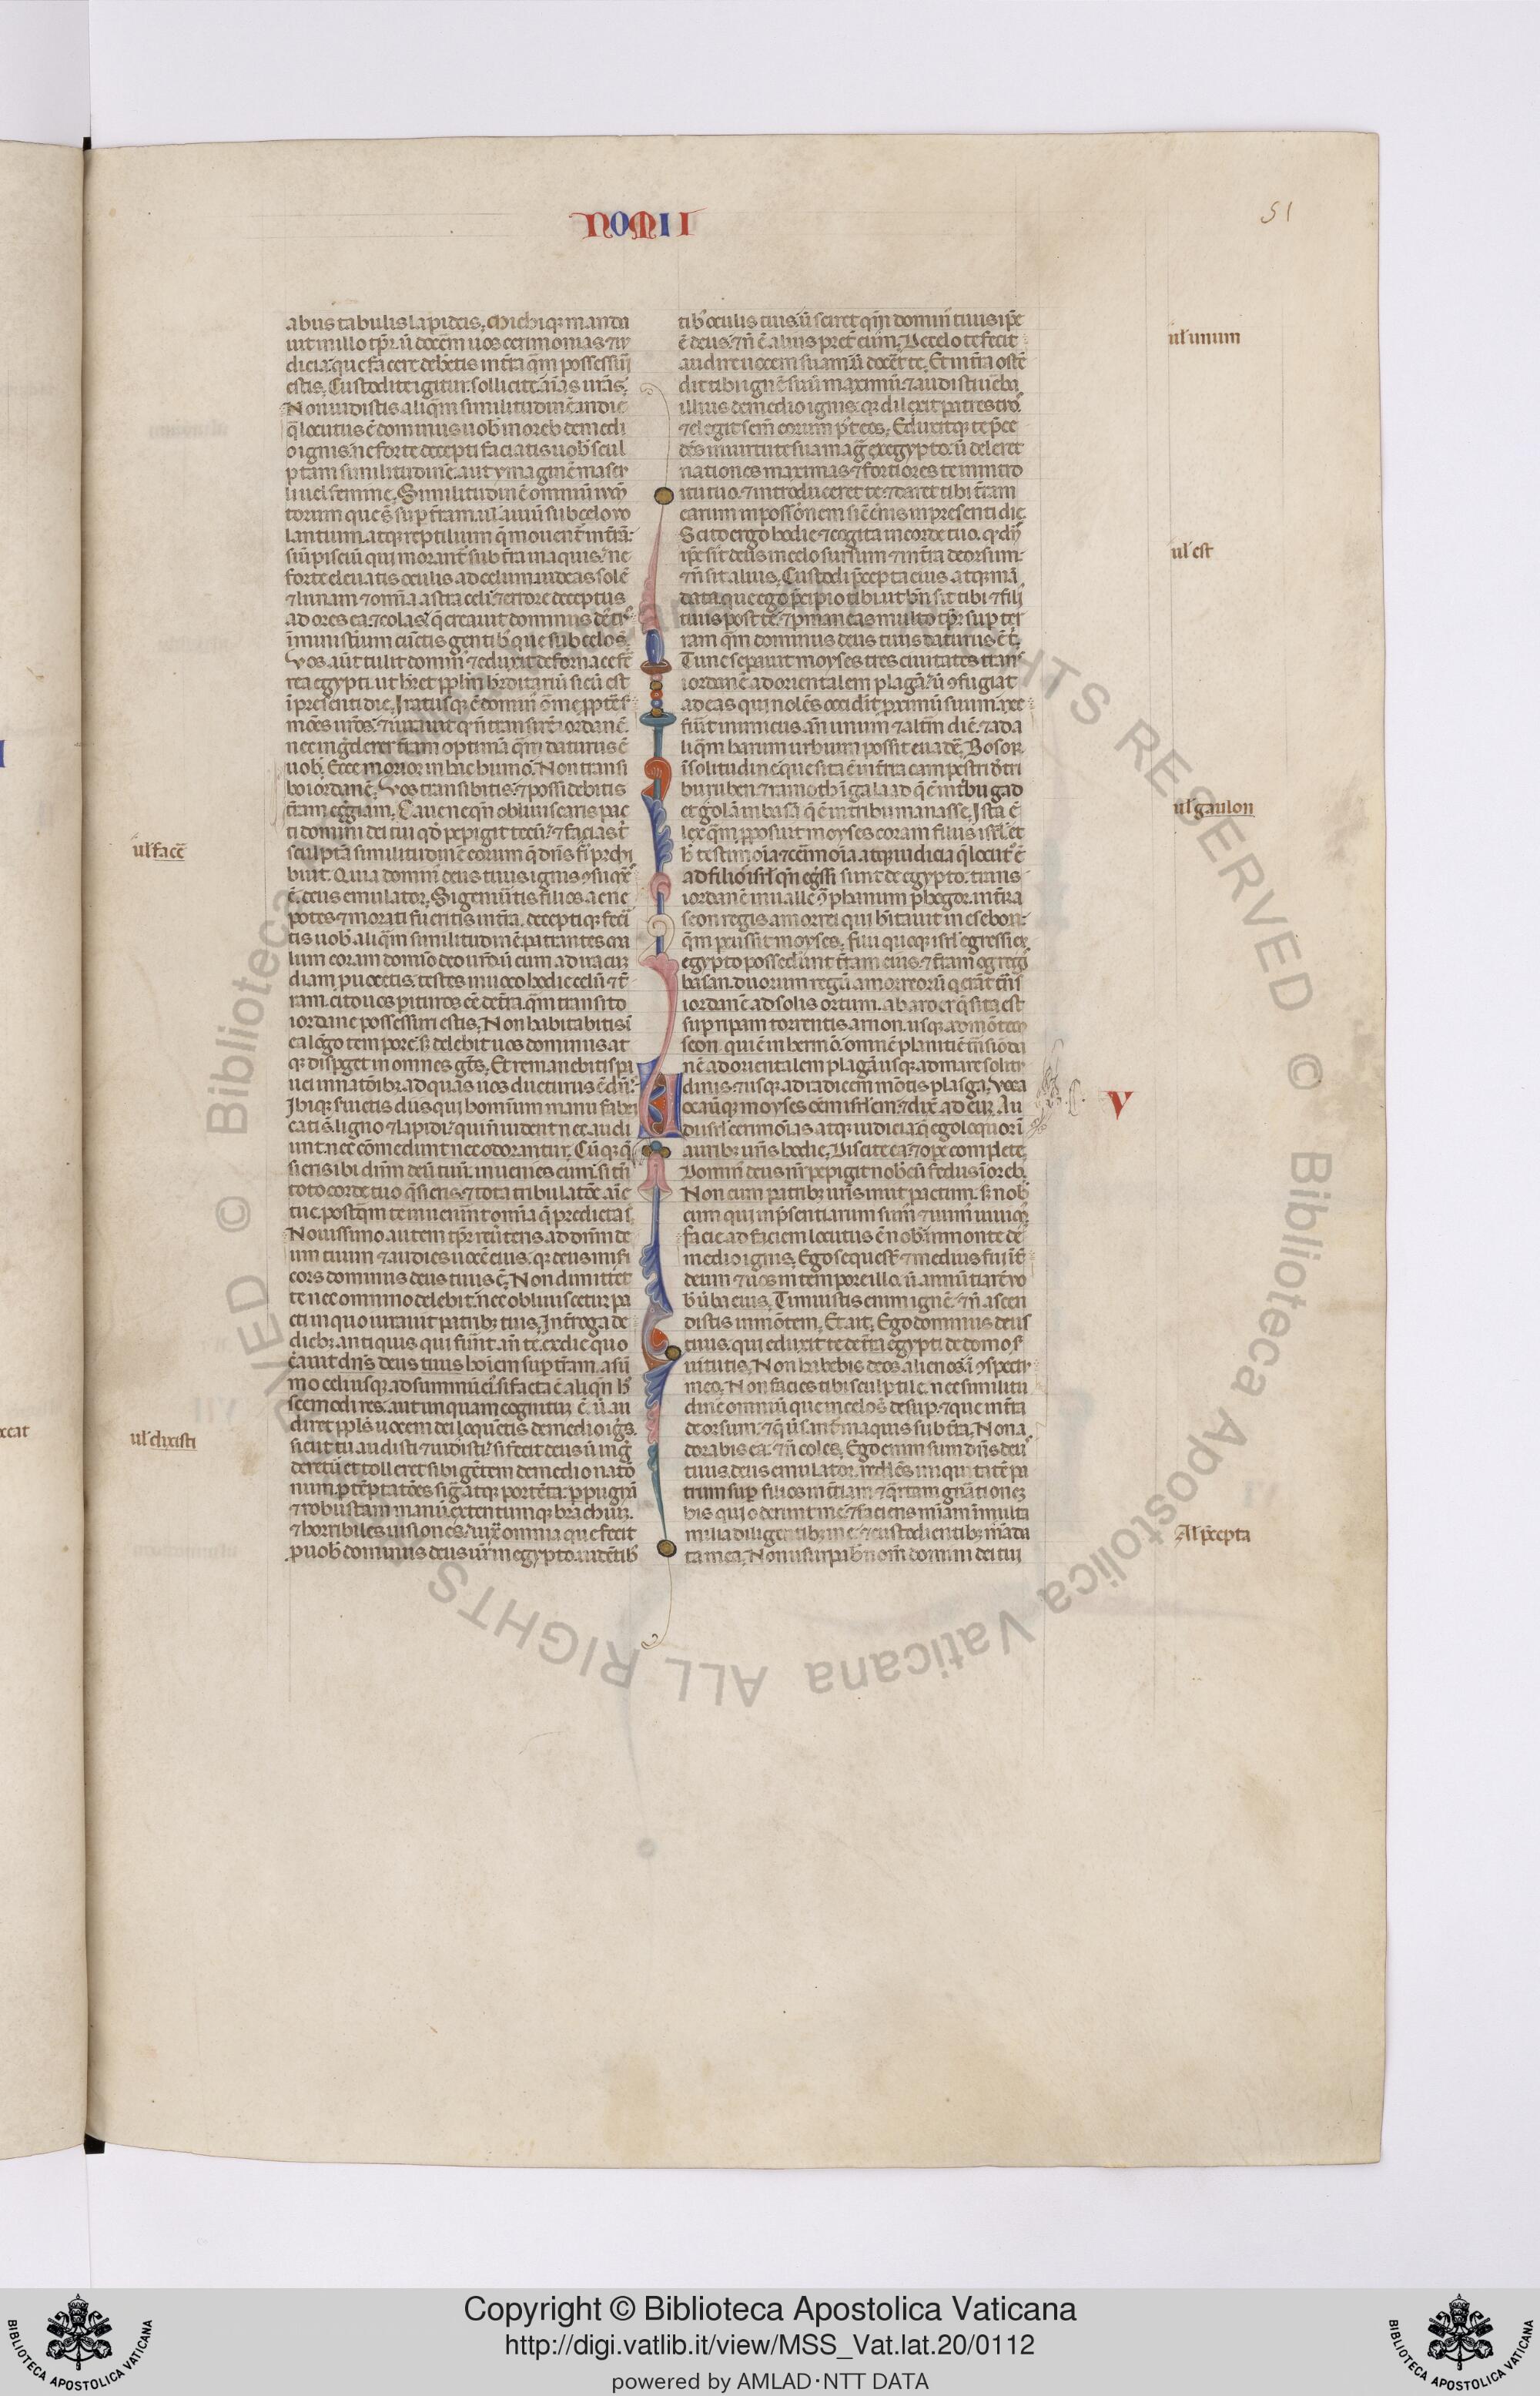 NOMII
51
abus tabulis lapideis. Michiq; manda
uit in illo tp̄r. ū docēm uos cerimonias ⁊ iu
dicia. que facere deb̄etis in t̄ra q̄m possessuri
estis. Custodite igitur sollicite aīas ūras.
Non uidistis aliq̄m similitudinē in die
q̄ locutus ē dominus uob̄ in oreb de medi
o ignis. ne forte decepti faciatis uob̄ scul
ptam similitudinē. aut ymaginē mascu
li uel femine. Similitudinē omniū ium̄
torum que sē sup t̄ram. ul̓ auiū sub celo uo
lantium. atq; reptilium q̄ mouent̄ in t̄ra.
siū pisciū qui morant̄ sub t̄ra in aquis. ne
forte eleuatis oculis ad celum. uideas solē
⁊ lunam ⁊ om̄ia astra celi. ⁊ errore deceptus
adores ea. ⁊ colas. q̄ creauit dominus d̄s tuus
ī ministerium cūctis gentib̄ que sub celo s̄.
Vos aūt tulit domin̄ ⁊ eduxit de fornace fer
rea egypti. ut h̄ret pplm̄ h̄editariū sicū est
ī presenti die. Iratusq; ē domin̄
nec inḡderer t̄ram optimā q̄m daturus ē
uob̄. Ecce morior in hac humo. Non transi
bo iordanē. Vos transibitis. ⁊ possidebitis
t̄ram eg̓giam. Caue neq̄n obliuiscaris pac
ti domini dei tui qd̄ pepigit tecū. ⁊ facias t̓
sculptā similitudinē eorum q̄ dn̄s fi̓ prohi
buit. Quia domin̄ deus tuus ignis ꝯsum̄
ē. deus emulator. Si genūitis filios ac ne
potes ⁊ morati fueritis in t̄ra. deceptiq; feceri
tis uob̄ aliq̄m similitudinē patrantes ma
lum coram domīo deo uro ū eum ad iracū
diam puocetis. testes inuoco hodie celū ⁊ t̄
ram. cito uos pituros cē de t̄ra. q̄m transito
iordane possessuri estis. Non habitabitis ī
ea lōgo tempore. s; delebit uos dominus at
q; disp̄get in omnes gētes. Et remanebitis pau
ci in natōib; ad quas uos ducturus ē dn̄s.
Ibiq; seruietis diis qui hominum manu fabri
cati s̄. ligno ⁊ lapidi. qui n̄ uident nec audi
unt. nec cōmedunt nec odorantur. Cūq; q̄
sieris ibi dn̄m deū tuū. inuenies eum. si tn̄
toto corde tuo q̄sieris. ⁊ tota tribulatōe aīe
tue. postq̄m te inuenerint om̄ia q̄ predicta s̄.
Nouissimo autem tp̄r reūteris ad dn̄m de
um tuum ⁊ audies uocē eius. q; deus miseri
cors dominus deus tuus ē. Non dimittet
te nec omnino delebit. nec obliuiscetur pa
cti in quo iurauit patrib; tuis. Int̄roga de
dieb; antiquis qui fuerūt an̄ te. ex die quo
c̄auit dn̄s deus tuus hoīem sup t̄ram. a sū
mo celi usq; ad summū ei. si facta ē aliqn̄ h̓
scemodi res. aut unquam cognitū ē. ū au
diret ppls̄ uocem dei loquētis de medio ignis.
sicut tu audisti ⁊ uidisti. si fecit deus ū ing̓
deretū et tolleret sibi gētem de medio natō
num. p tēptatōes signa atq; portēta. p pugnā
⁊ robustam manū. extentumq; brachium.
⁊ horribiles uisiones. iux̄ omnia que fecit
p uob̄ dominus deus uester in egypto. uidētib̄
tib̓ oculis tuis. ū scires qm̄ domin̄ tuus ip̄e
ē deus. ⁊ n̄ ē alius preter eum. De celo te fecit
audire uocem suam. ū docēt te. Et in t̄ra ostē
dit tibi ignē suū maximū. ⁊ audisti ūba
illius de medio ignis. q; dilexit patres tuos.
⁊ elegit sem̄ eorum p̓t eos. Eduxitq; te p̄ce
dēs in uirtute sua mag̓ ex egypto. ū deleret
nationes maximas ⁊ fortiores te in intro
itu tuo. ⁊ introduceret te. ⁊ daret tibi t̄ram
earum in possōnem sic c̄nis in presenti die.
Scito ergo hodie ⁊ cogita in corde tuo. q; dn̄s
ip̄e sit deus in celo sursum ⁊ in t̄ra deorsum.
⁊ n̄ sit alius. Custodi p̄cepta eius. atq; mā
data. que ego p̄cipio tibi. ut bn̄ sit tibi ⁊ filiis
tuis post te. ⁊ pmaneas multo tp̄r sup ter
ram q̄m dominus deus tuus daturus ē t̓.
Tunc sepauit moyses tres ciuitates trans
iordanē ad orientalem plagā. ū ꝯfugiat
ad eas qui nolēs occidit proximū suum. nec
fuit inimicus an̄ unum ⁊ altm̄ diē. ⁊ ad a
liq̄m harum urbium possit euadē. Bosor
ī solitudine. que sita ē in t̄ra campestri d̓ tri
bu ruben. ⁊ ramoth ī galaad q̄ ē in t̓bu gad
et golam in basā q̄ ē in tribu manasse. Ista ē
lex q̄m pposuit moyses coram filiis isrl̓. et
h̓ testimoīa ⁊ cerimoīa atq; iudicia q̄ locut̓ ē
ad filios isrl̓ qn̄ eg̓ssi sunt de egypto. trans
iordanē in ualle ꝯ̓ phanum phegor. in t̄ra
seon regis amorrei qui h̓itauit in esebon.
q̄m pcussit moyses. filii quoq; isrl̓ egressi ex
egypto possederunt t̄ram eius. ⁊ t̄ram og regis
basan. duorum regū amorreorū q̓ erāt t̄ns
iordanē ad solis ortum. ab aroer q̄ sita est
sup ripam torrentis arnon. usq; ad mōtem
seon qui ē in hermō. omnē planitiē tn̄s iorda
nē ad orientalem plagā. usq; ad mare solitu
dinis. ⁊ usq; ad radicem mōtis phasga. Voca
ocaūitq; moyses oēm isrl̓em. ⁊ dix̄ ad eum. Au
di isrl̓ cerimoīas atq; iudicia. q̄ ego loquor ī
aurib; ūris hodie. Discite ea. ⁊ ope complete.
Domin̄ deus nr̄ pepigit nob̄cū fedus ī oreb.
Non cum patrib; nr̄is iniit pactum. s; nob̄
cum qui in p̄sentiarum sum̄ ⁊ uiuim̄
facie ad faciem locutus ē nob̄ in monte de
medio ignis. Ego sequest̄ ⁊ medius fui int̄
deum ⁊ uos in tempore illo. ū annūtiarē uo
b̄ ūba eius. Timuistis enim ignē. ⁊ n̄ ascen
distis in mōtem. Et ait. Ego dominus deus
tuus. qui eduxi te de t̄ra egypti de domo s̓
uitutis. Non habebis deos alienos ī ꝯspectu
meo. Non facies tibi sculptile. nec similitu
dinē omniū que in celo s̄ desup. ⁊ que in t̄ra
deorsum. ⁊ q̄ ūsant̄ in aquis sub t̄ra. Non a
dorabis ea. ⁊ n̄ coles. Ego enim sum dn̄s deus
tuus. deus emulator. reddēs iniquitatē pa
trum sup filios in t̓tiam ⁊ q̄rtam gn̄ationem
his qui oderunt me. ⁊ faciens mīam in multa
milia diligentib; me. ⁊ custodientib; mādā
ta mea. Non usurpabis nom̄ domini dei tui
ul̓ face̓
ul̓ dixisti
ul̓ unum
ul̓ est
ul̓ gaulon
V
Al̓ p̄cepta
Copyright © Biblioteca Apostolica Vaticana
http://digi.vatlib.it/view/MSS_Vat.lat.20/0112
powered by AMLAD·NTT DATA
BIBLIOTECA APOSTOLICA VATICANA
BIBLIOTECA APOSTOLICA VATICANA
© Biblioteca Apostolica Vaticana ALL RIGHTS RESERVED